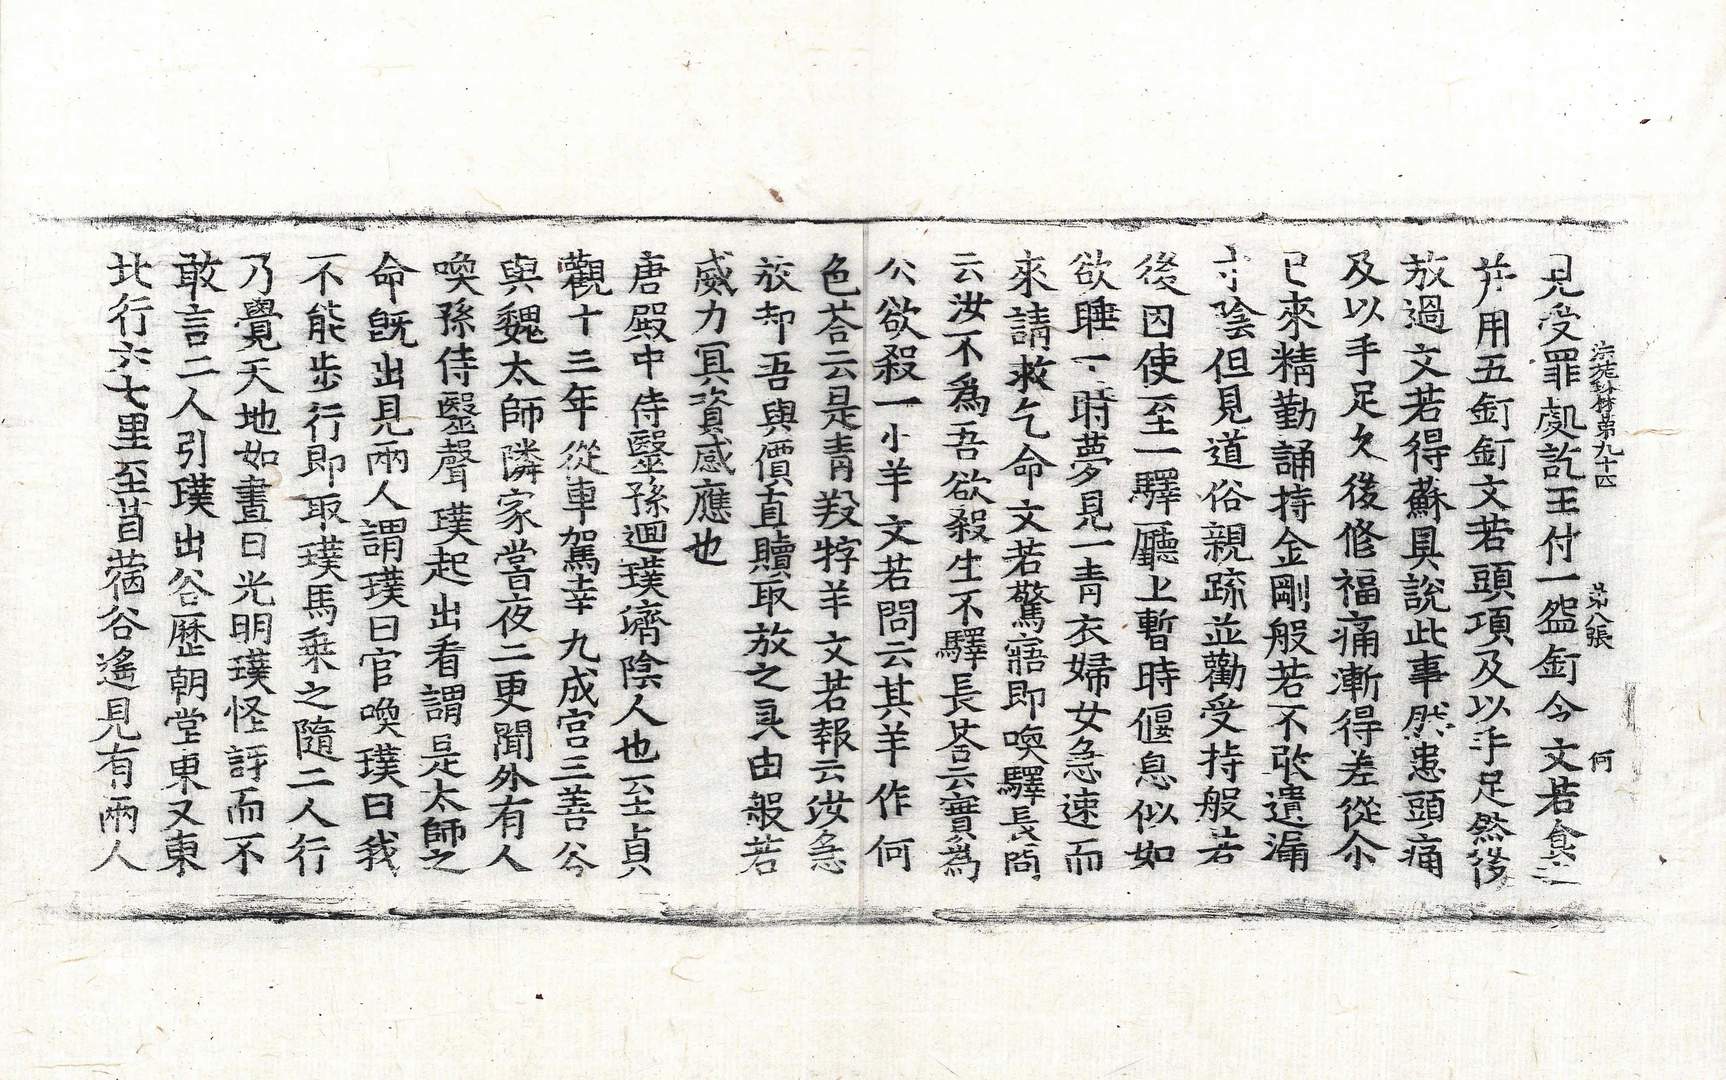 法苑珠林第九十四　第八張　何
見受罪處訖王付一盌釘令文若食之
并用五釘釘文若頭項及以手足然後
放過文若得蘇具說此事然患頭痛
及以手足久後修福痛漸得差從尒
已來精勤誦持金剛般若不敢遺漏
寸陰但見道俗親疏並勸受持般若
後因使至一驛廳上暫時偃息似如
欲睡一時夢見一青衣婦女急速而
來請救乞命文若驚寤即喚驛長問
云汝不爲吾欲殺生不驛長荅云實爲
公欲殺一小羊文若問云其羊作何
色荅云是青羖牸羊文若報云汝急
放却吾與價直贖取放之良由般若
威力冥資感應也
唐殿中侍醫孫迴璞濟陰人也至貞
觀十三年從車駕幸九成宮三善谷
與魏太師隣家甞夜二更聞外有人
喚孫侍醫聲璞起出看謂是太師之
命旣出見兩人謂璞曰官喚璞曰我
不能步行即取璞馬乘之隨二人行
乃覺天地如晝日光明璞怪訝而不
敢言二人引璞出谷歷朝堂東又東
北行六七里至苜蓿谷遙見有兩人